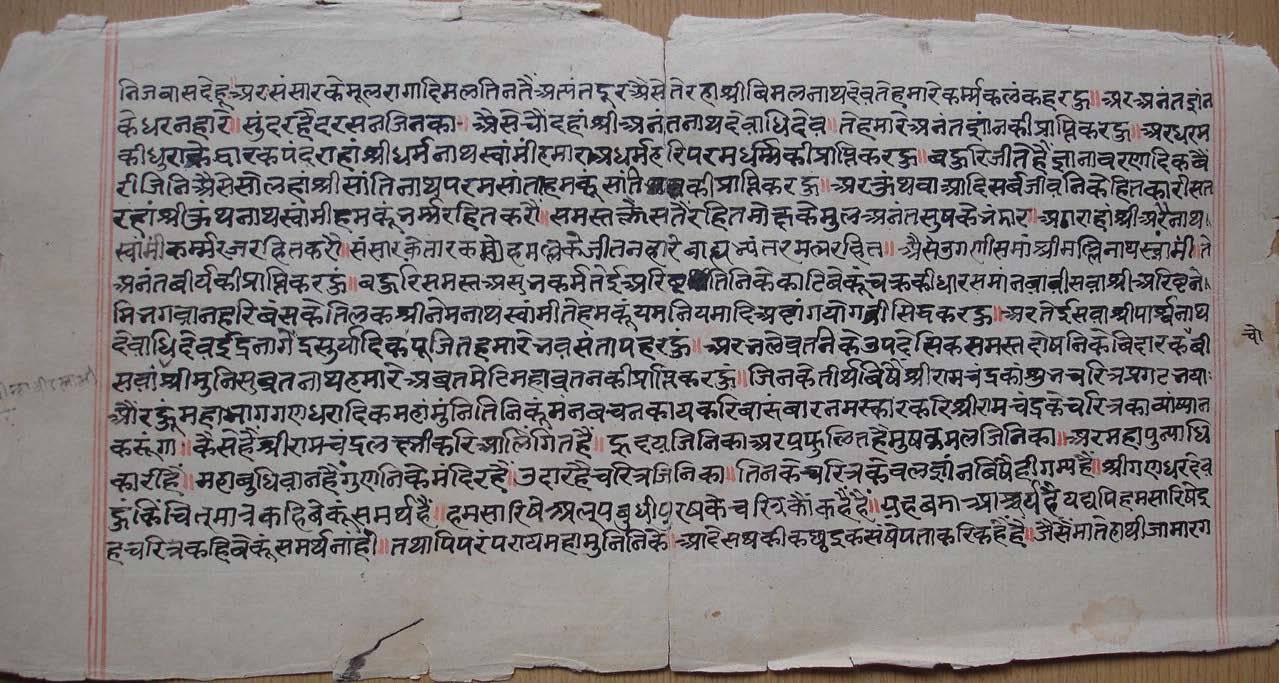 निजवासदेहू॥अरसंसारकेमूलरागादिमलतिनतैंअत्यंतदूरअैसेतेरहाश्रीविमलनाथदेवतेहमारेकर्म्मकलंकहरहु॥अरअनंतज्ञांन
केधरनहारे॥सुंदरहैदरसनजिनका॥अैसेचौदहांश्रीअनंतनाथदेवाधिदेव॥तेहमारेअनंतज्ञांनकीप्राप्तिकरहु॥अरधरम
कीधुराकेधारकपंदराहांश्रीधर्मनाथस्वांमीहमाराअधर्महरिपरमधर्म्मकीप्राप्तिकरहु॥बहुरिजीतेहैंज्ञानावरणादिकबै
रीजिनिअैसेसोलहांश्रीसांतिनाथपरमसांतहमकूंसांतिकीप्राप्तिकरहु॥अरकुंथवाआदिसर्वजीवनिकेहितकारीसत
रहांश्रीकुंथनाथस्वांमीहमकूंभर्म्मरहितकरौ॥समस्तक्लेसतैंरहितमोक्षकेमूलअनंतसुषकेभंडार॥अठाराहांश्रीअरैनाथ
स्वांमीकर्म्मरजरहितकरौ॥संसारकेतारकमोहमल्लकेजीतनहारेबाह्याभ्यंतरमलरहित॥अैसेउगणीसमांश्रीमल्लिनाथस्वांमी॥ते
अनंतवीर्यकीप्राप्तिकरहुं॥बहुरिसमस्तअसुभकर्मतेईअरिष्टतिनिकेकाटिबेकूंचक्रकीधारसमांनबाबीसवांश्रीअरिष्टने
मिभगवानहरिवंसकेतिलकश्रीनेमनाथस्वांमीतेहमकूंयमनियमादिअष्टांगयोगकीसिद्धकरहु॥अरतेईसवाश्रीपार्श्वनाथ
देवाधिदेवईंद्रनागेंद्रसुर्यादिकपूजितहमारेभवसंतापहरहुं॥अरभलेव्रतनिकेउपदेसिकसमस्तदोषनिकेविदारकवी
चौ
सवांश्रीमुनिसुव्रतनाथहमारेअव्रतमेटिमहाव्रतनकीप्राप्तिकरहुं॥जिनकेतीर्थविषैश्रीरामचंद्रकाशुभचरित्रप्रगटभया
औरहुंमहाभागगणधरादिकमहांमुंनितिनिकूंमंनबचनकायकरिबारंबारनमस्कारकरिश्रीरामचंद्रकेचरित्रकाव्याष्यान
करूंगा॥कैसेहैंश्रीरामचंद्रलक्ष्मीकरिआलिंगितहैं॥हृदयजिनिकाअरप्रफुल्लितहैमुषकमलजिनिका॥अरमहापुन्याधि
कारीहैं॥महाबुधिवानहैंगुणनिकेमंदिरहैं॥उदारहैचरित्रजिनिका॥तिनकेचरित्रकेवलज्ञांनविषैहीगम्यहैं॥श्रीगणधरदेव
हुकिंचित्मात्रकहिबेकूंसमर्थहैं॥हमसारिषेअल्पबुधीपुरषकेचरित्रकौंकहैंहैं॥यहबडाआश्चर्यहैयद्यपिहमसारिषेइ
हचरित्रकहिबेकूंसमर्थनांही॥तथापिपरंपरायमहामुनिनिके॥आदेसथकीकछुइकसंषेपताकरिकहैंहैं॥जैसेंमातेहाथीजामारग